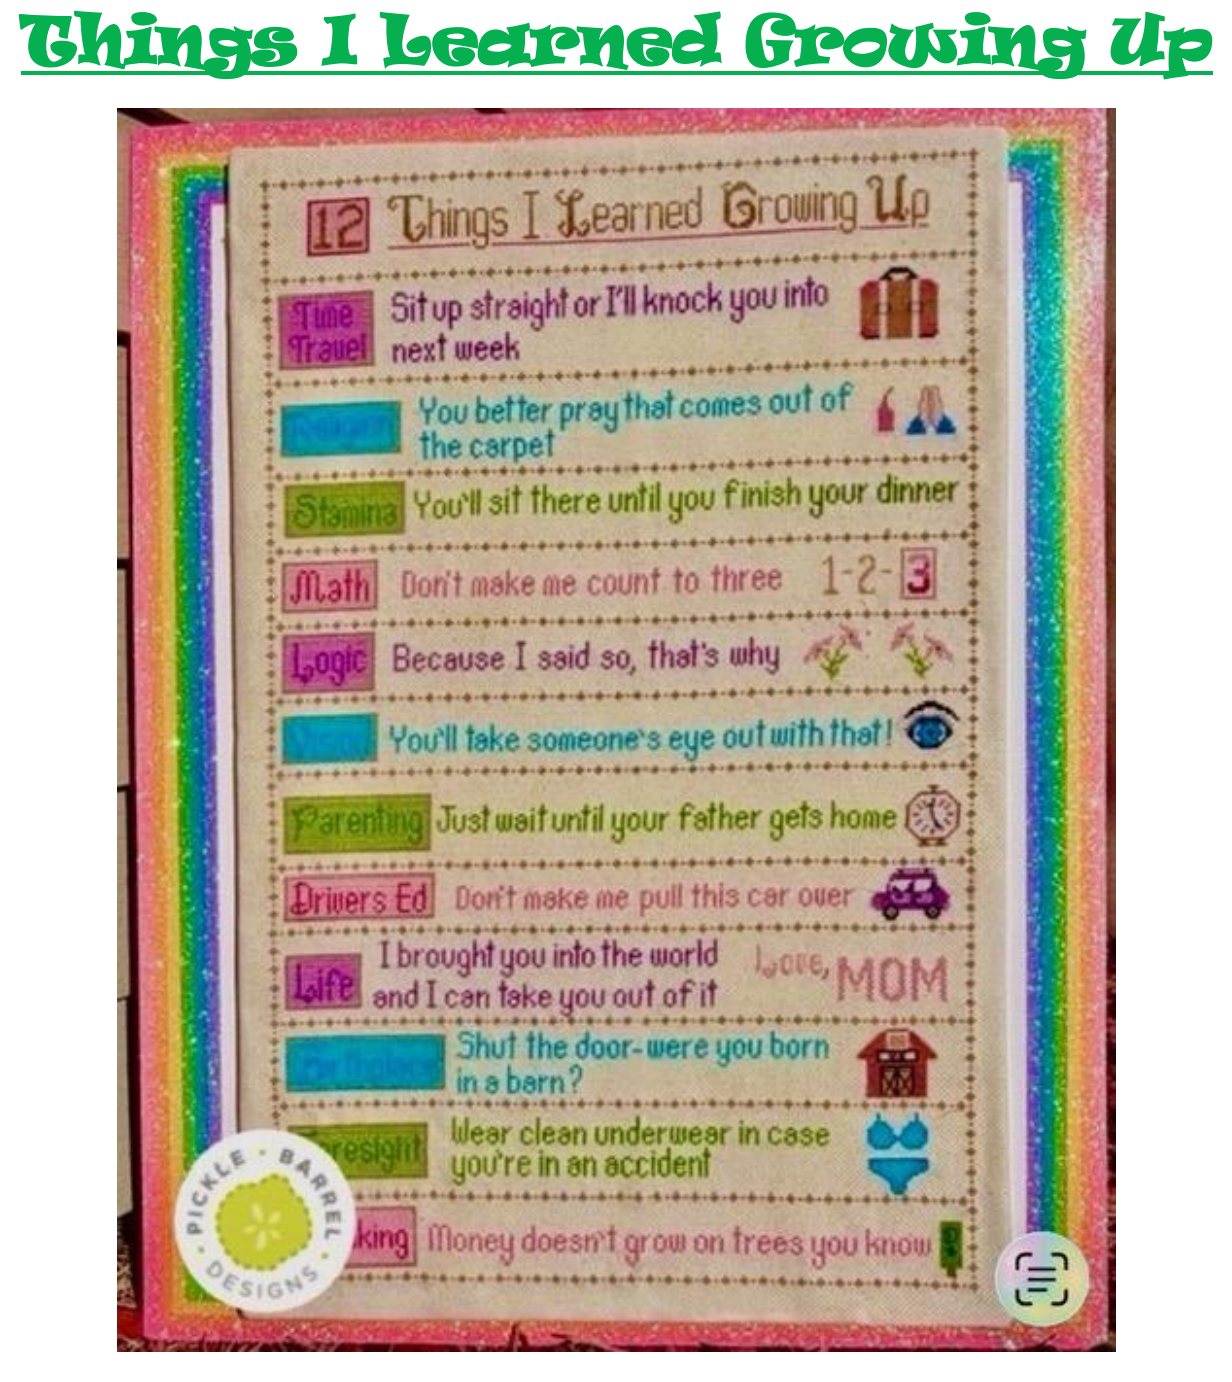 Things I Learned Growing Up
12 Things I Learned Growing Up
Time
Travel
Sit up straight or I'll knock you into
next week
Religion
You better pray that comes out of
the carpet
Stamina
You'll sit there until you finish your dinner
Math
Don't make me count to three
1-2-3
Logic
Because I said so, that's why
You'll take someone's eye out with that!
Parenting
Just wait until your father gets home
Drivers Ed
Don't make me pull this car over
Life
I brought you into the world
and I can take you out of it
Love, MOM
Shut the door-were you born
in a barn?
resight
Wear clean underwear in case
you're in an accident
king
Money doesn't grow on trees you know
PICKLE · BARREL · DESIGNS ·